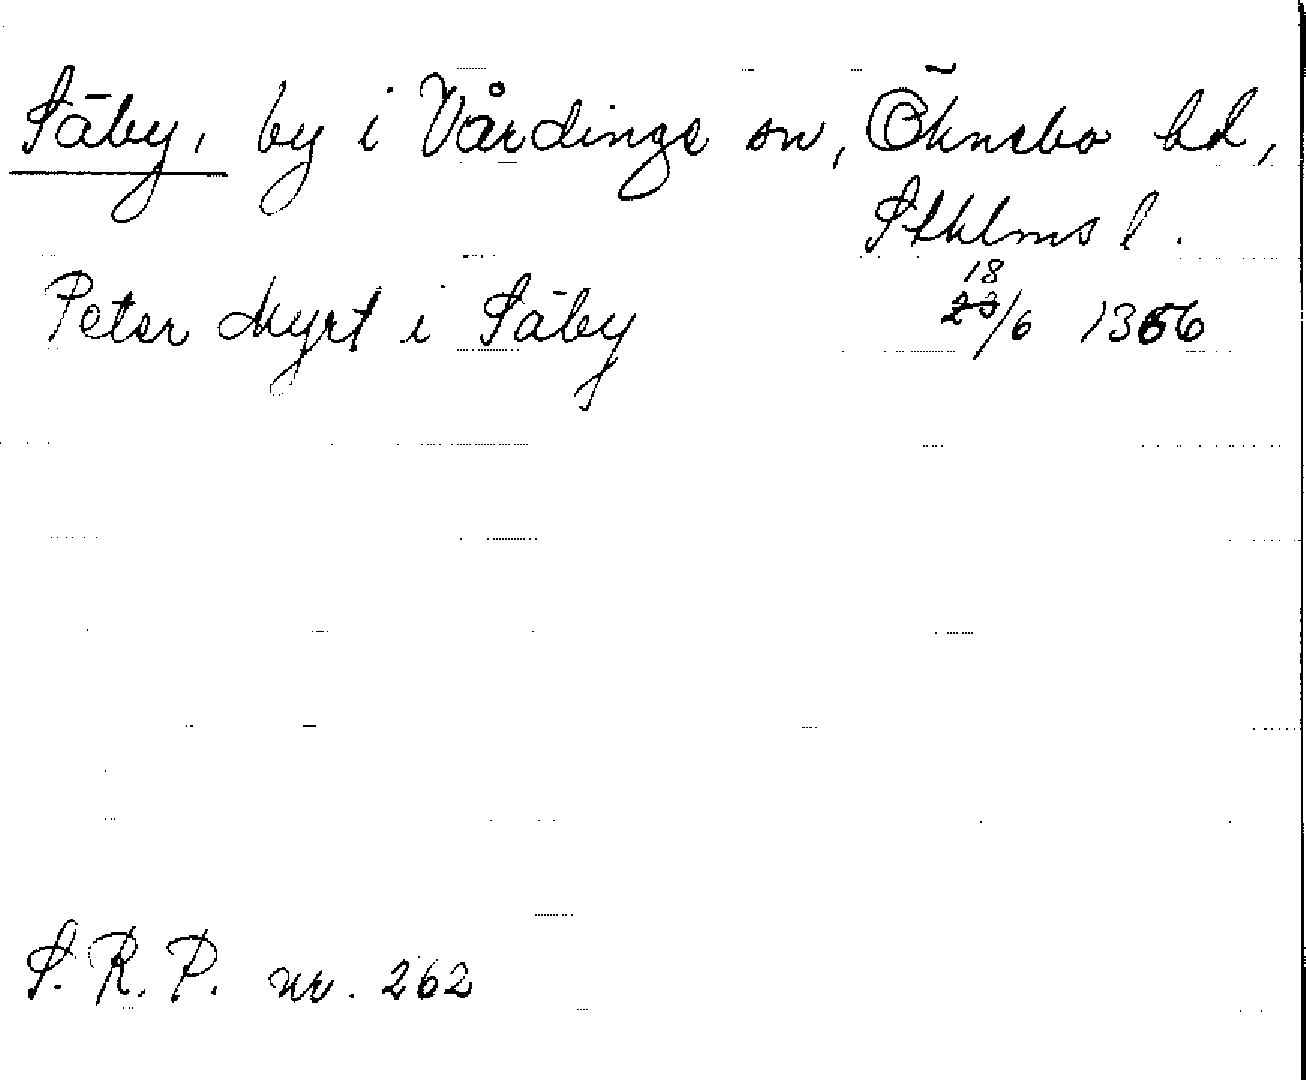 Säby, by i Vårdinge sn, Öknebo hd,
Sthlms l.
Peter Myrt i Säby 18 23/6 1356
S.R.P. nr. 262